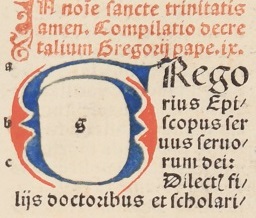 In noīe sancte trinitatis
amen. Compilatio decre
talium Gregorij pape .ix.
a
GRego
rius Epi⸗
b
g
scopus ser
uus seruo⸗
c
rum dei:
Dilect̄ fi⸗
lijs doctoribus et scholari⸗